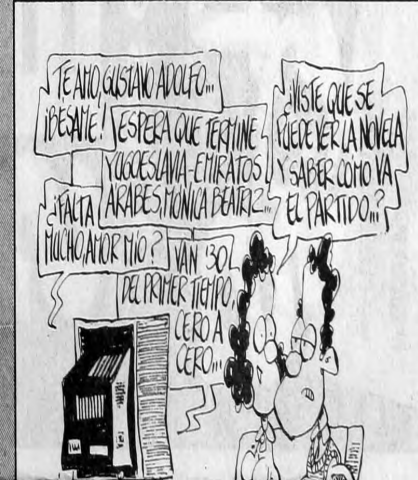 TE AMO, GUSTAVO ADOLFO...
¡BESAME!
ESPERA QUE TERMINE
YUGOESLAVIA-EMIRATOS
ARABES, MONICA BEATRIZ...
¿FALTA
MUCHO, AMOR MIO?
VAN 30'
DEL PRIMER TIEMPO,
CERO A
CERO...
¿VISTE QUE SE
PUEDE VER LA NOVELA
Y SABER CÓMO VA
EL PARTIDO...?